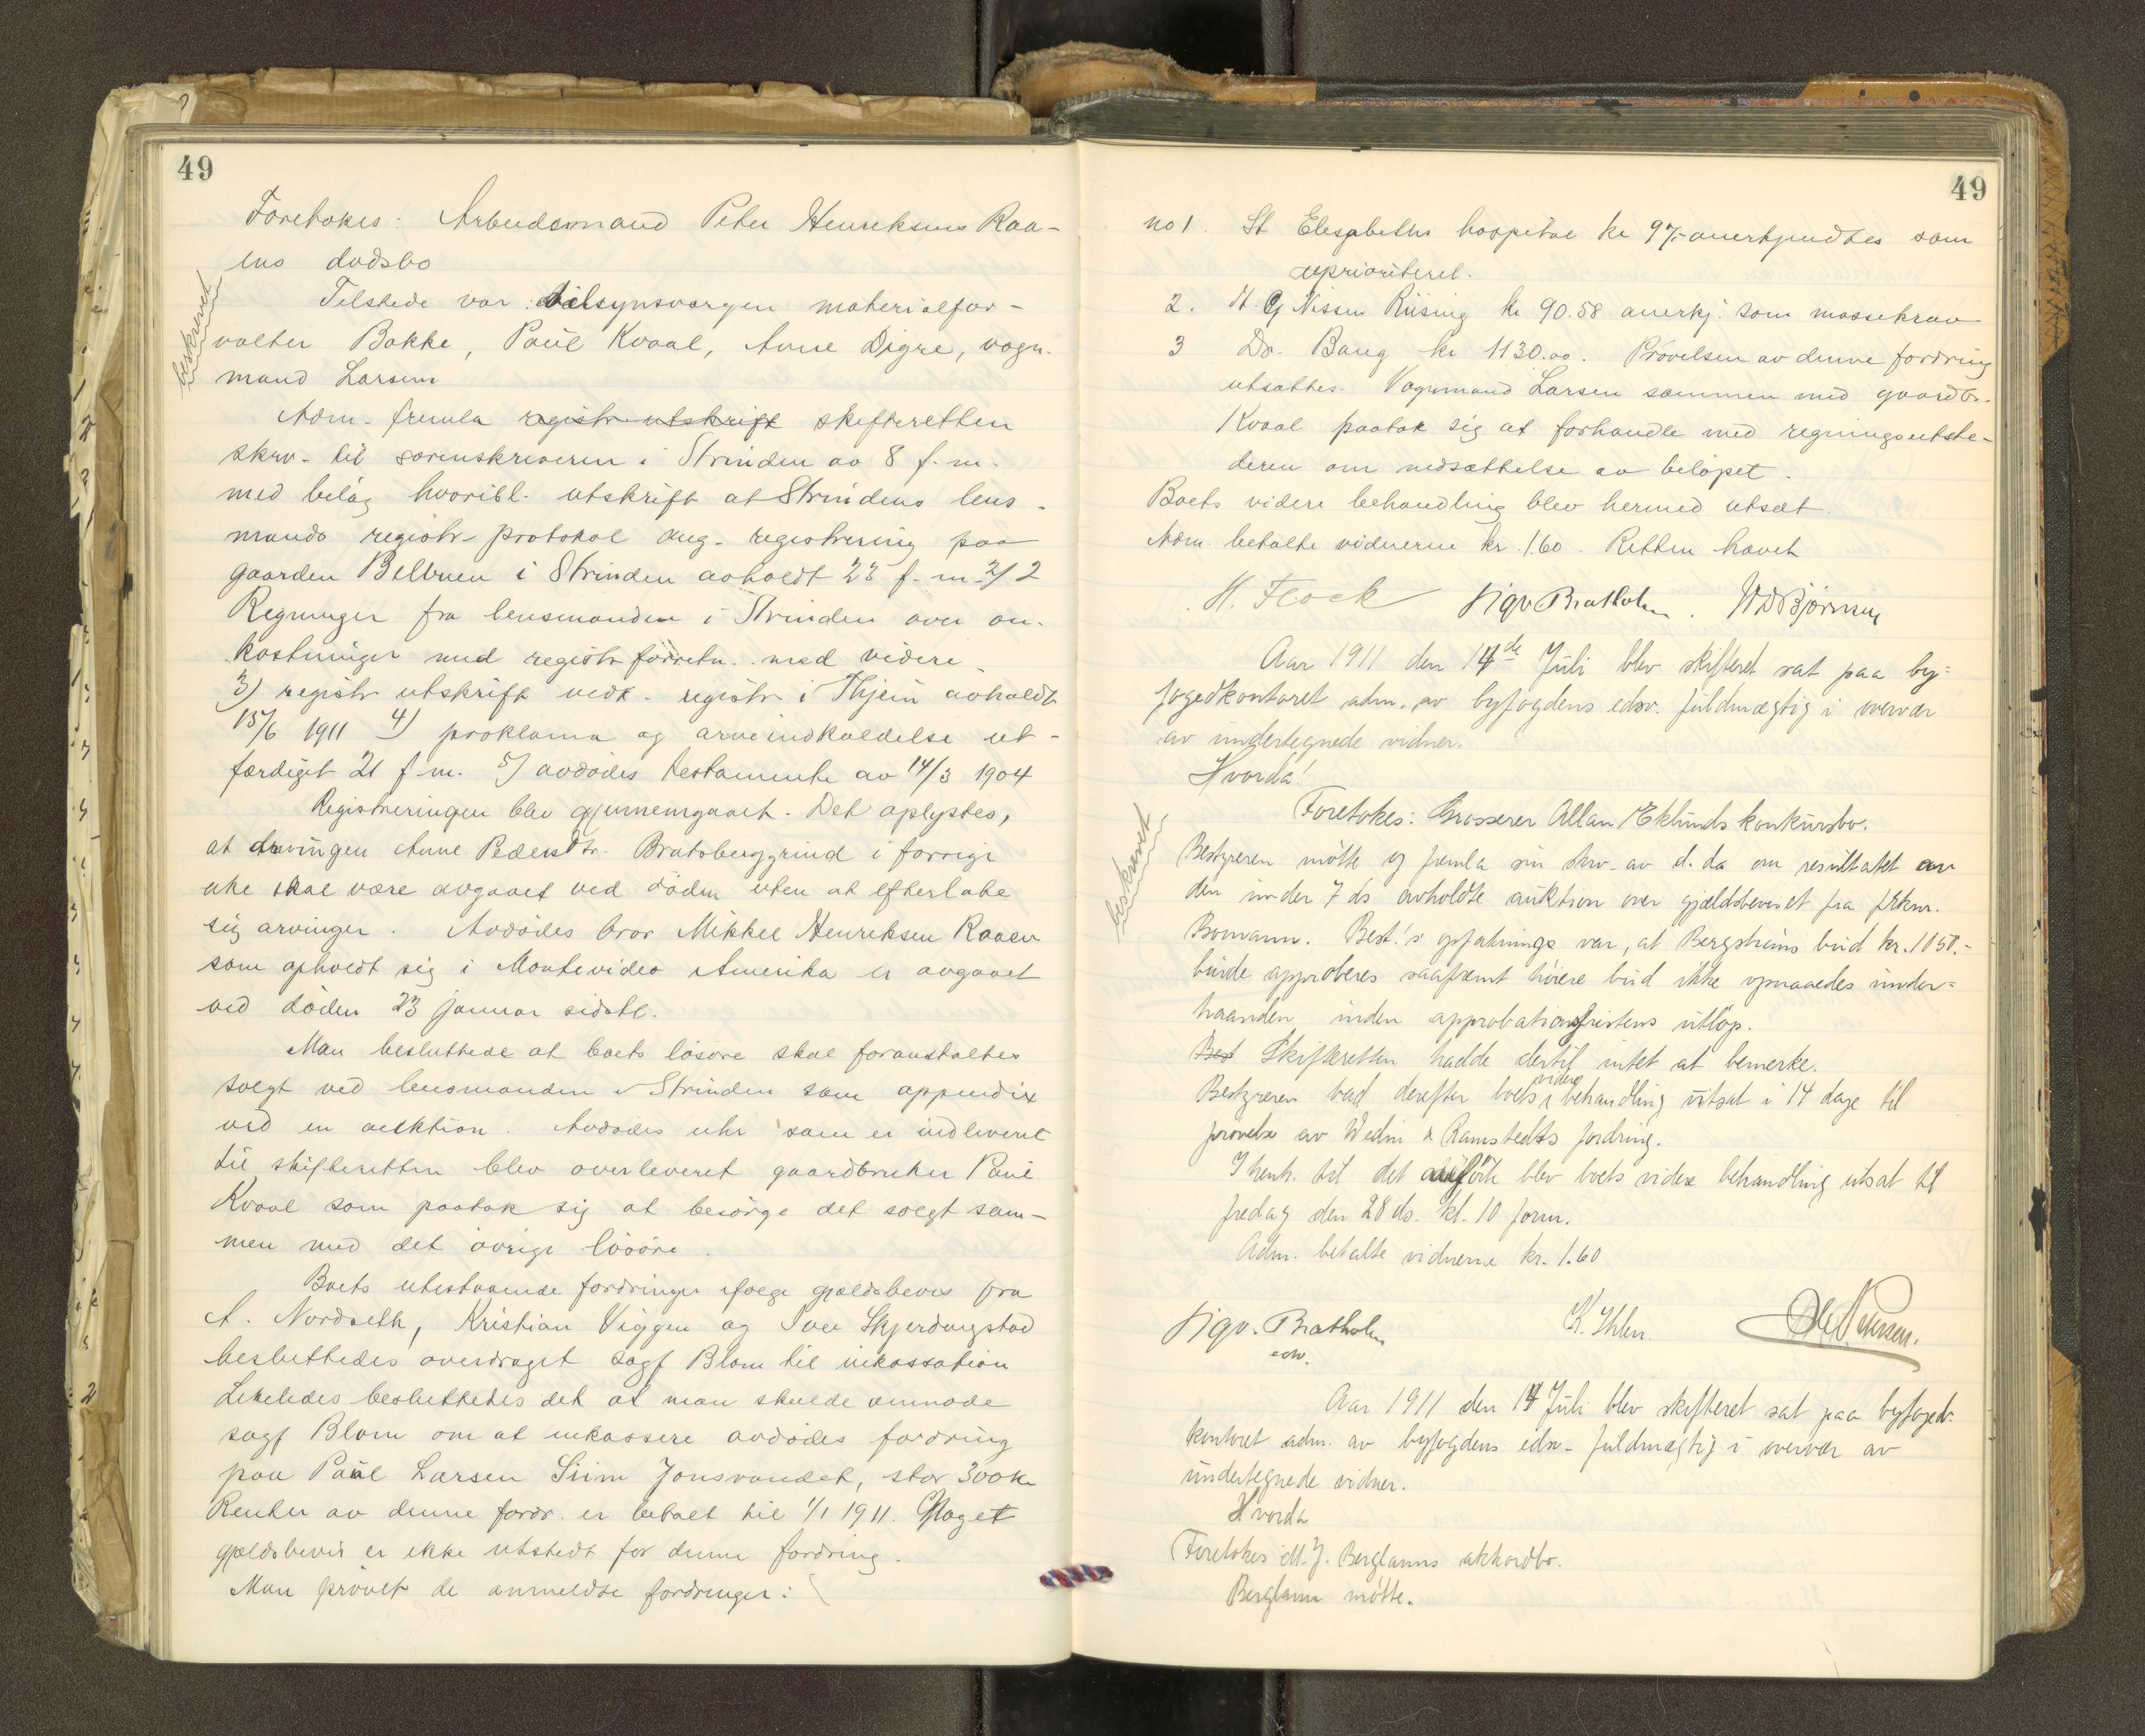 49
Foretokes: Arbeidsmand Peter Henriksens Raa-
ens dødsbo
beskrevet
Tilstede var: tilsynsvergen materialfor-
valter Bakke, Paul Kvaal, Anne Digre, vogn-
mand Larsen
Adm. fremla registr utskrift skifteretten
skriv- til sorenskriveren i Strinden av 8 f. m.
med bilag hvoribl. utskrift at Strindens lens-
mands registr- protokol ang- registrering paa
gaarden Belbuen i Strinden avholdt 23 f-m- 2/ 2
Regninger fra lensmanden i Strinden over om-
kostninger med registr forretn. med videre
3) registr utskrift vedk- registr i Thjem avholdt
15/6 1911 4) proklama og arveindkaldelse ut-
færdiget 21 f m. 5) avdødes testamente av 14/3 1904
Registreringen blev gjennemgaaet. Det oplystes,
at arvingen Anne Pedersdtr. Bratsberggrind i forrige
uke skal være avgaaet ved døden uten at efterlate
sig arvinger. Avdødes bror Mikkel Henriksen Raaen
som opholdt sig i Montevideo Amerika er avgaaet
ved døden 23 januar sidstl.
Man besluttede at boets løsøre skal foranstaltes
solgt ved lensmanden i Strinden som appendix
ved en auktion. Avdødes uhr som er indleveret
til skifteretten blev overleveret gaardbruker Paul
Kvaal som paatok sig at besørge det solgt sam-
men med det øvrige løsøre.
Boets utestaaende fordringer ifølge gjældsbevis fra
A. Nordseth, Kristian Viggen og Iver Skjerdingstad
besluttedes overdraget sagf Blom til inkassation
Likeledes besluttedes det at man skulde anmode
sagf Blom om at inkassere avdødes fordring
paa Paul Larsen Siim Jonsvandet, stor 300 kr
Renter av denne fordr. er betalt til 1/1 1911. Noget
gjældsbevis er ikke utstedt for denne fordring.
Man prøvet de anmeldte fordringer:
49
no 1. St Elesabeths hospital kr 97,- anerkjendtes som
uprioriteret.
2. H. G Nissen Riising kr 90.58 anerkj. som massekrav
3 Dr. Bang kr 1130.00. Prøvelsen av denne fordring
utsattes. Vognmand Larsen sammen med gaardbr.
Kvaal paatok sig at forhandle med regningsutste-
deren om nedsættelse av beløpet.
Boets videre behandling blev hermed utsat.
Adm. betalte vidnerne kr. 1.60. Retten hævet
H. Flock Sigv Bratholm. Bjørnsen
Aar 1911 den 14de Juli blev skifteret sat paa by-
fogedkontoret adm. av byfogdens edsv. fuldmægtig i overvær
av undertegnede vidner.
Hvorda!
Foretokes: Grosserer Allan Eklunds konkursbo.
beskrevet
Bestyreren møtte og fremla sin skriv- av d. da om resultatet av
den under 7 ds avholdte auktion over gjældsbeviset fra frknr.
Bomann. Best!s opfatnings var, at Bergstrøms bud kr. 1050.-
burde approberes saafremt høiere bud ikke opnaaedes under-
haanden inden approbationsfristens utløp.
Best Skifteretten hadde dertil intet at bemerke.
Bestyreren bad derefter boets videre behandling utsat i 14 dage til
prøvelse av Wedin & Ramstedts fordring.
I henh. til det anførte blev boets videre behandling utsat til
fredag den 28 ds. kl. 10 form.
Adm. betalte vidnerne kr. 1.60
Sigv. Bratholm K. Ihlen. Ole Petersen.
edsv.
Aar 1911 den 14 Juli blev skifteret sat paa byfoged-
kontoret adm. av byfogdens edsv- fuldmægtig i overvær av
undertegnede vidner.
Hvorda
Foretokes M. J. Berglanns akkordbo.
Berglann møtte.